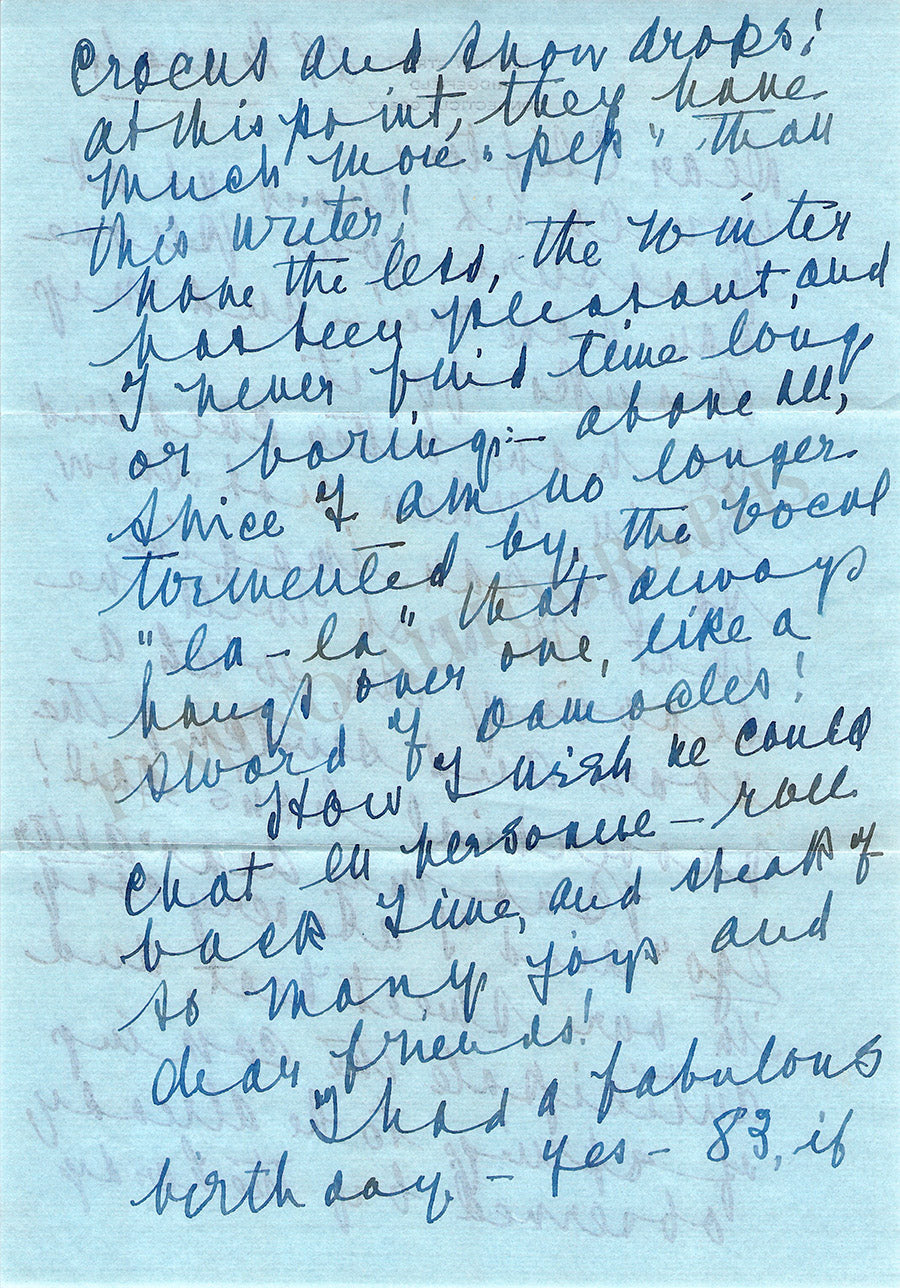 Crocus and snow drops!
at this point, they have
much more "pep" than
this writer!
None the less, the winter
has been pleasant, and
I never find time long
or boring:— above all,
since I am no longer
tormented by the vocal
"la-la" that always
hangs over one, like a
sword of Damocles!
How I wish we could
chat en personne — roll
back Time, and speak of
so many joys and
dear friends!
I had a fabulous
birthday — yes — 83, if